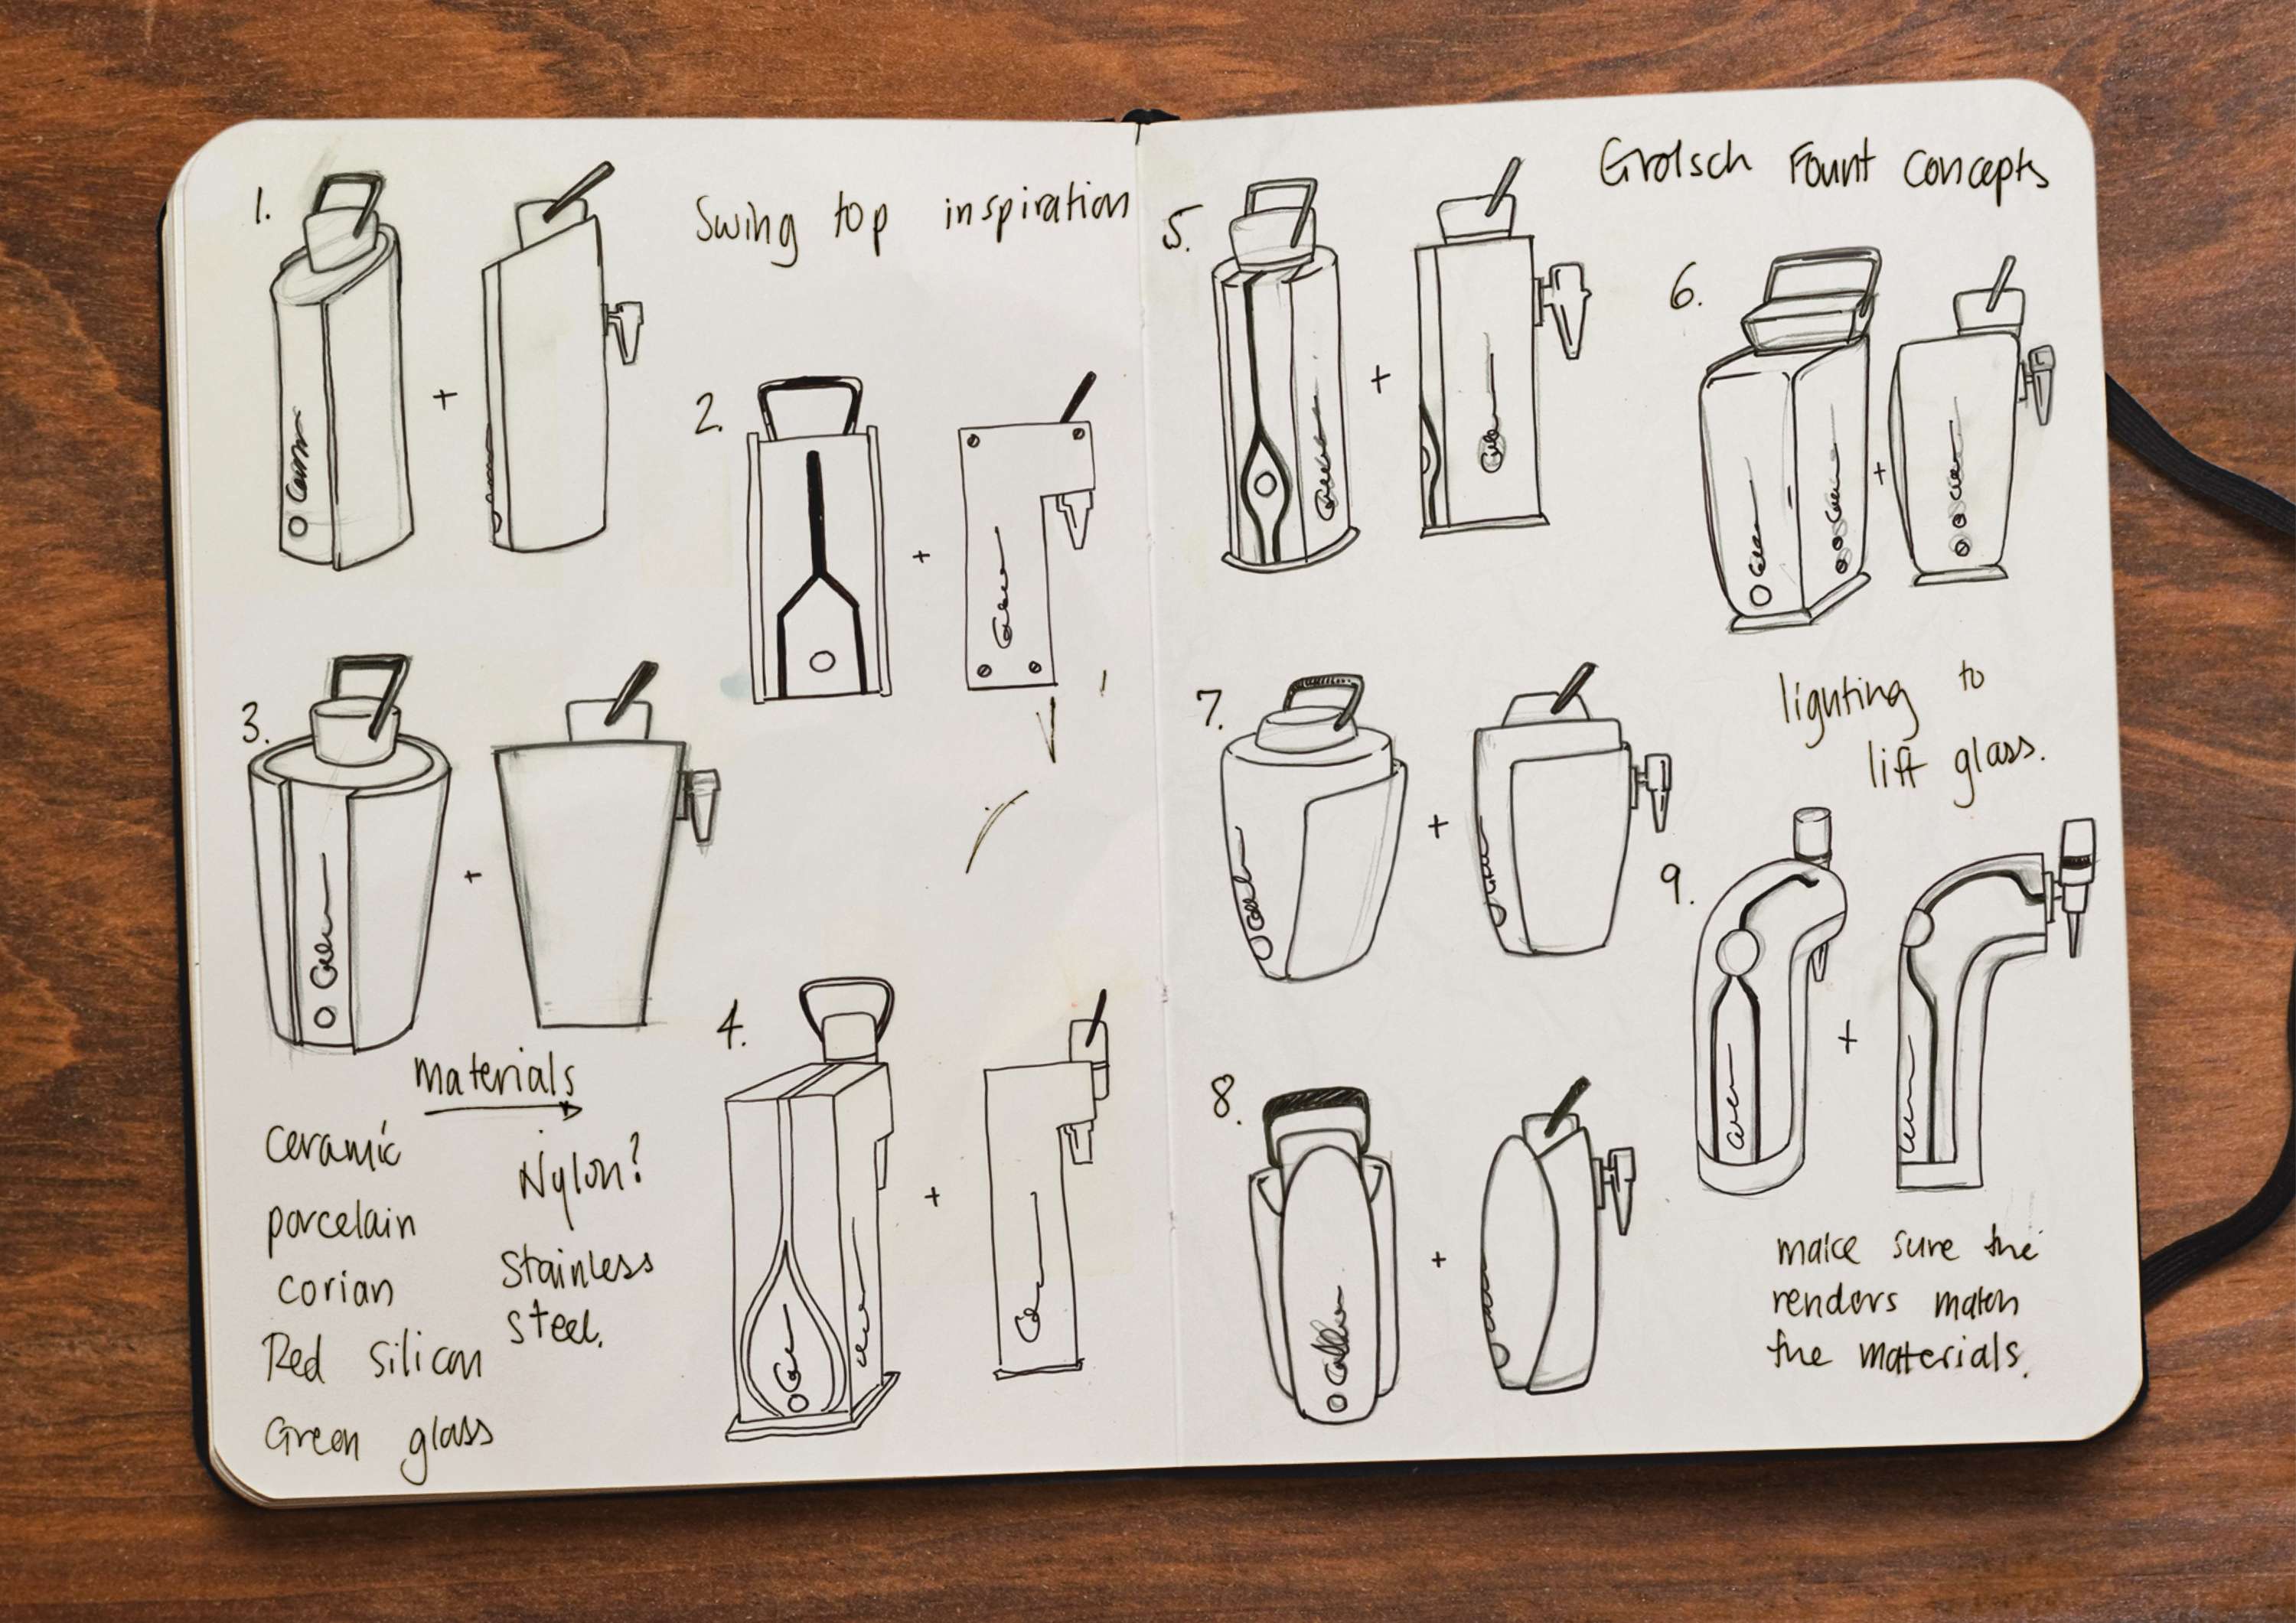 1.
Swing top inspiration
2.
3.
materials
ceramic
porcelain
corian
Red silicon
Green glass
Nylon?
Stainless
steel.
4.
Grolsch Fount Concepts
5.
6.
7.
lighting to
lift glass.
8.
9.
make sure the
renders match
the materials.